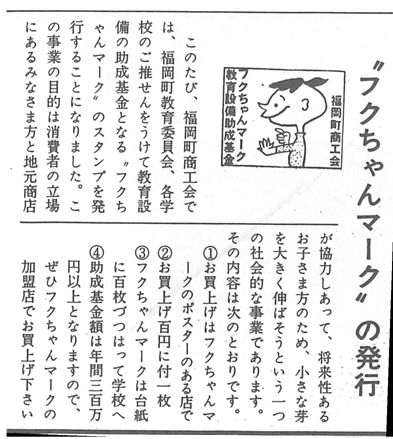 〝フクちゃんマーク〟の発行
福岡町商工会
フクちゃんマーク
教育設備助成基金
このたび、福岡町商工会で
は、福岡町教育委員会、各学
校のご推せんをうけて教育設
備の助成基金となる〝フクち
ゃんマーク〟のスタンプを発
行することになりました。こ
の事業の目的は消費者の立場
にあるみなさま方と地元商店
が協力しあって、将来性ある
お子さま方のため、小さな芽
を大きく伸ばそうという一つ
の社会的な事業であります。
その内容は次のとおりです。
①お買上げはフクちゃんマ
ークのポスターのある店で
②お買上げ百円に付一枚
③フクちゃんマークは台紙
に百枚づつはって学校へ
④助成基金額は年間三百万
円以上となりますので、
ぜひフクちゃんマークの
加盟店でお買上げ下さい